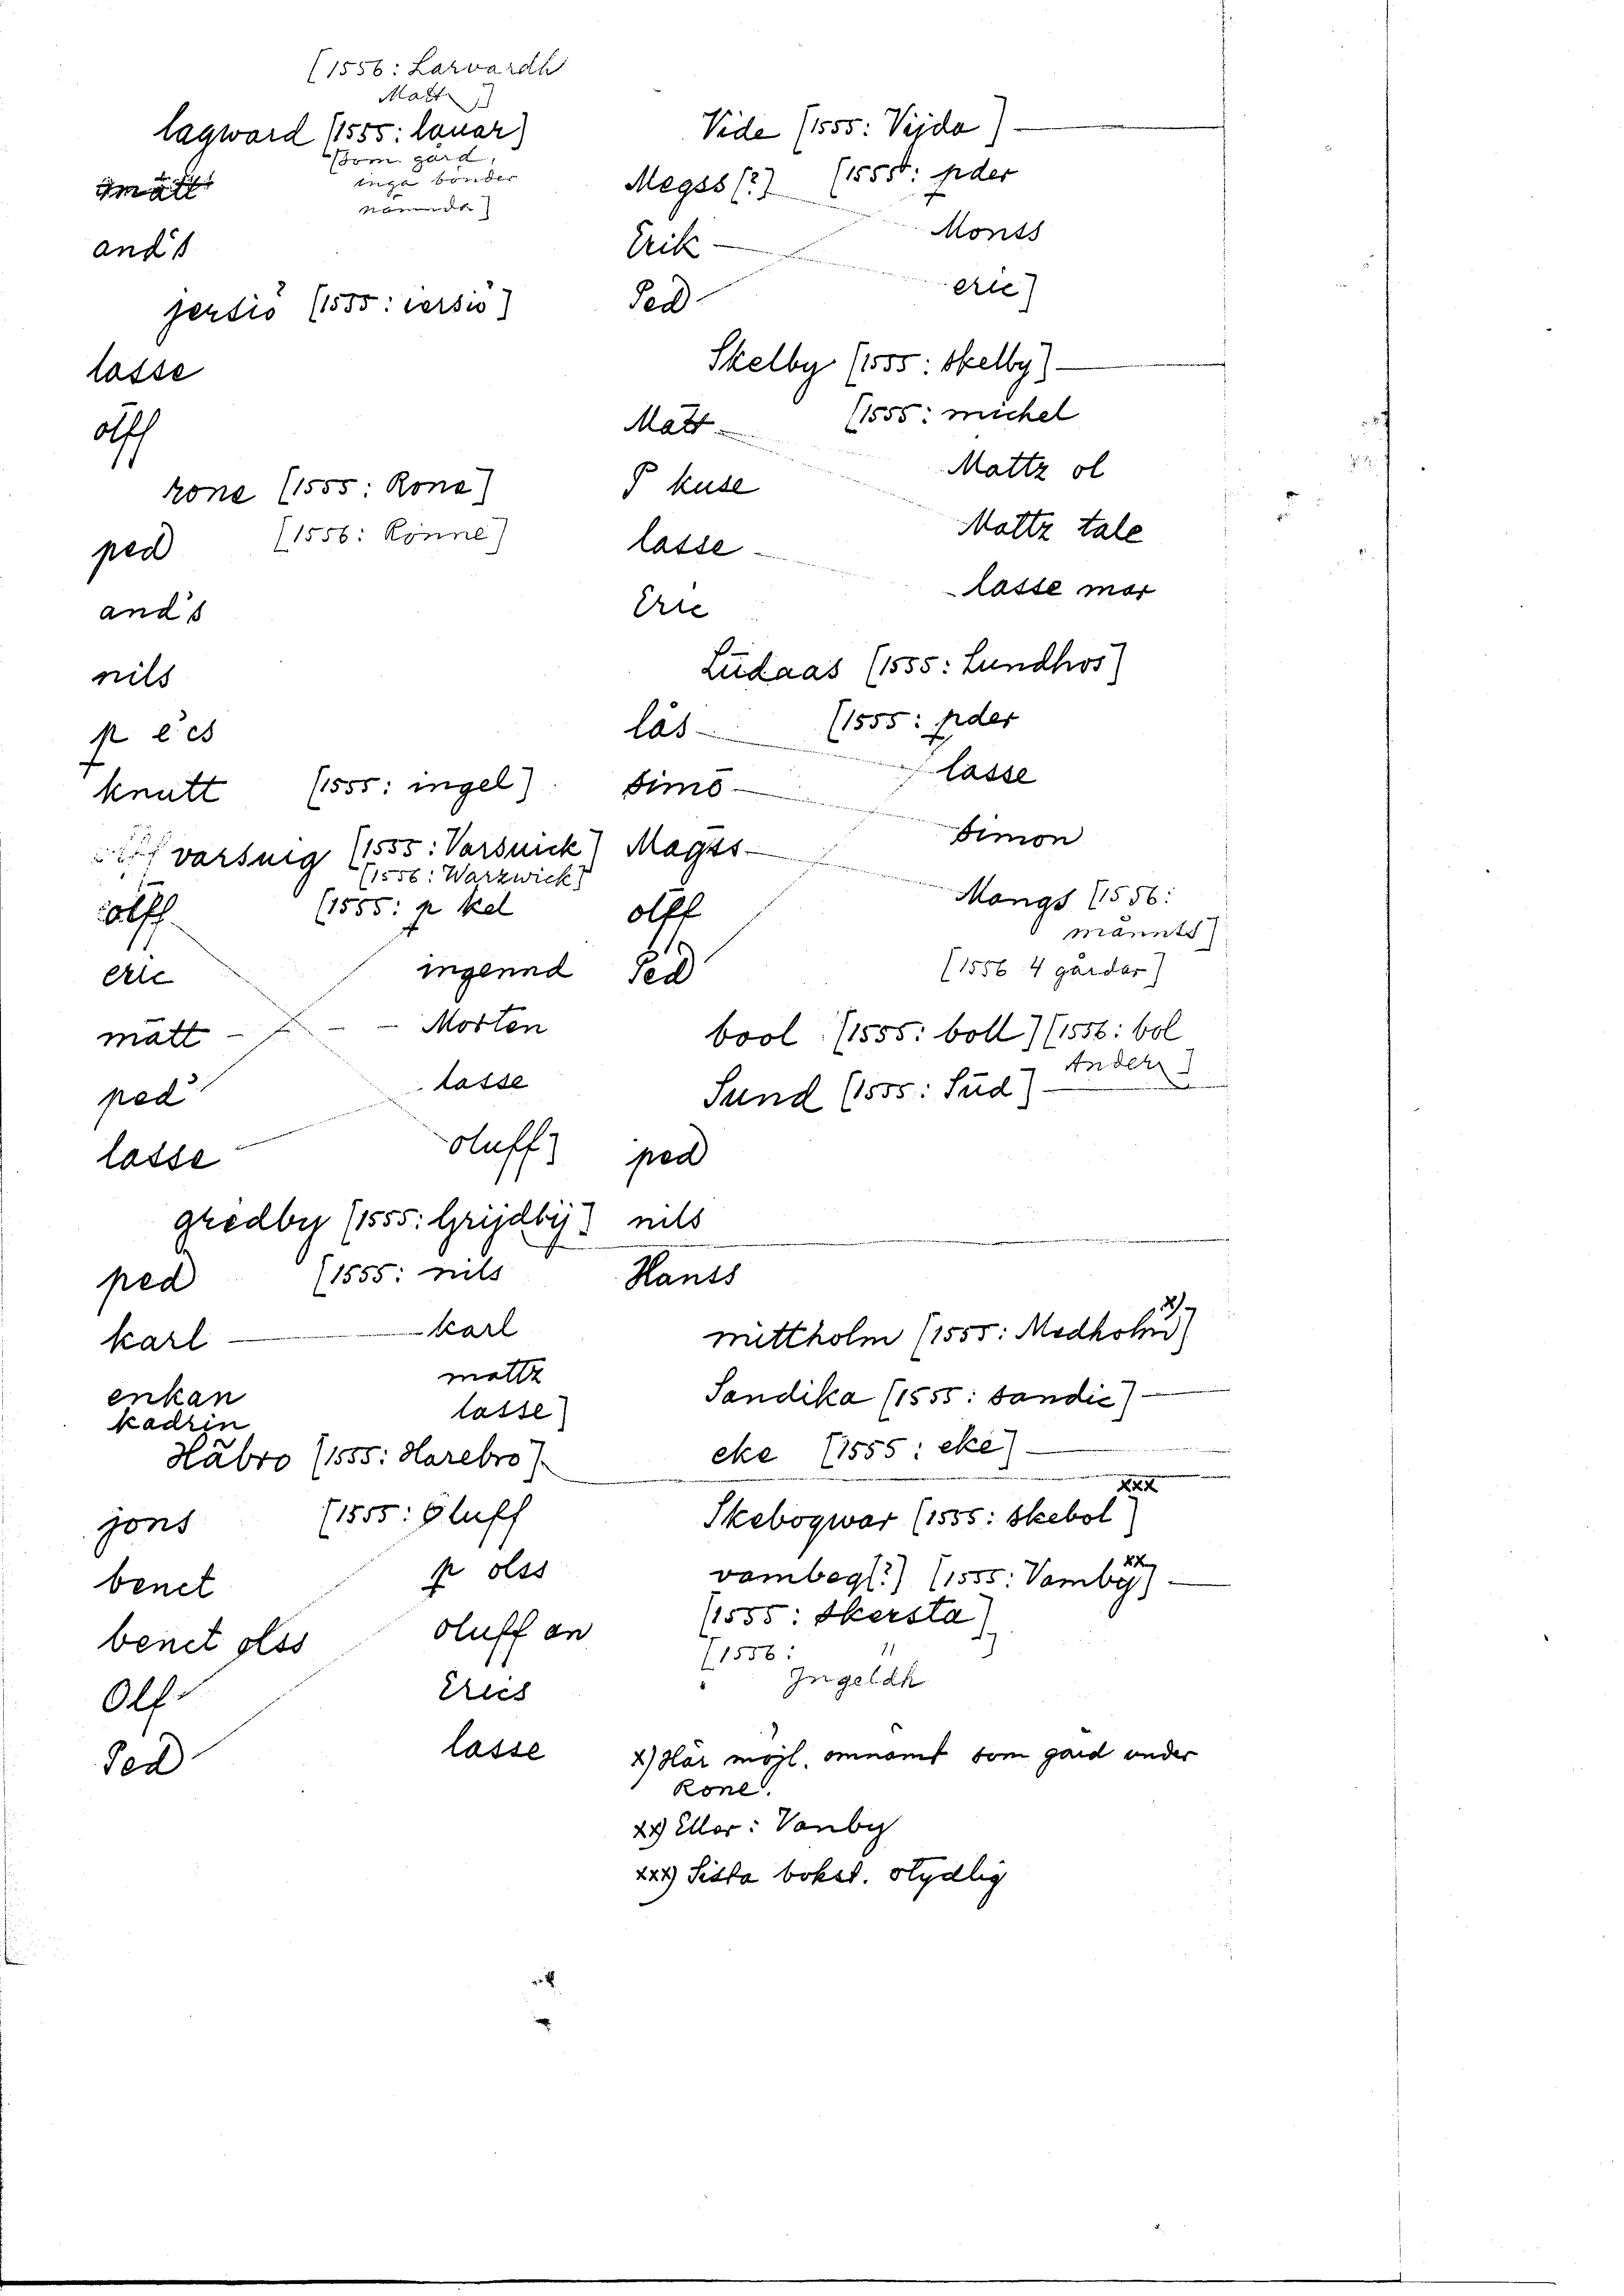 [1556: Larvardh
Matt]
lagward [1555: lauar]
[som gård,
inga bönder
nämnda]
and's
jersiö [1555: iersiö]
lasse
olff
rone [1555: Rone]
[1556: Rönne]
ped
and's
nils
p e'cs
knutt [1555: ingel]
varsuig [1555: Varsuick]
[1556: Warzwick]
olff [1555: p kel
eric ingennd
mätt Morten
ped lasse
lasse oluff]
gredby [1555: Grijdbÿ]
ped [1555: nils
karl karl
mattz
enkan
kadrin lasse]
Häbro [1555: Harebro]
jons [1555: Oluff
benct p olss
benct olss oluff an
Olf Erics
Ped lasse
Vide [1555: Vijda]
Megss [?] [1555: pder
Erik Monss
Ped eric]
Skelby [1555: skelby]
Matt [1555: michel
P kuse Mattz ol
lasse Mattz tale
Eric lasse mar
Lūdaas [1555: Lundhos]
las [1555: pder
simō lasse
Magss Simon
olff Mangs [1556:
månnts]
Ped [1556 4 gårdar]
bool [1555: boll] [1556: bol
Anders]
Sund [1555: Sūd]
ped
nils
Hanss
mittholm [1555: Medholm x)]
Sandika [1555: sandic]
eke [1555: eke]
Skebogwar [1555: skebol xxx]
vambeg[?] [1555: Vambÿ xx]
[1555: skersta]
[1556: "]
Ingeldh
x) Här möjl. omnämt som gård under
Rone.
xx) Eller: Vanby
xxx) Sista bokst. otydlig